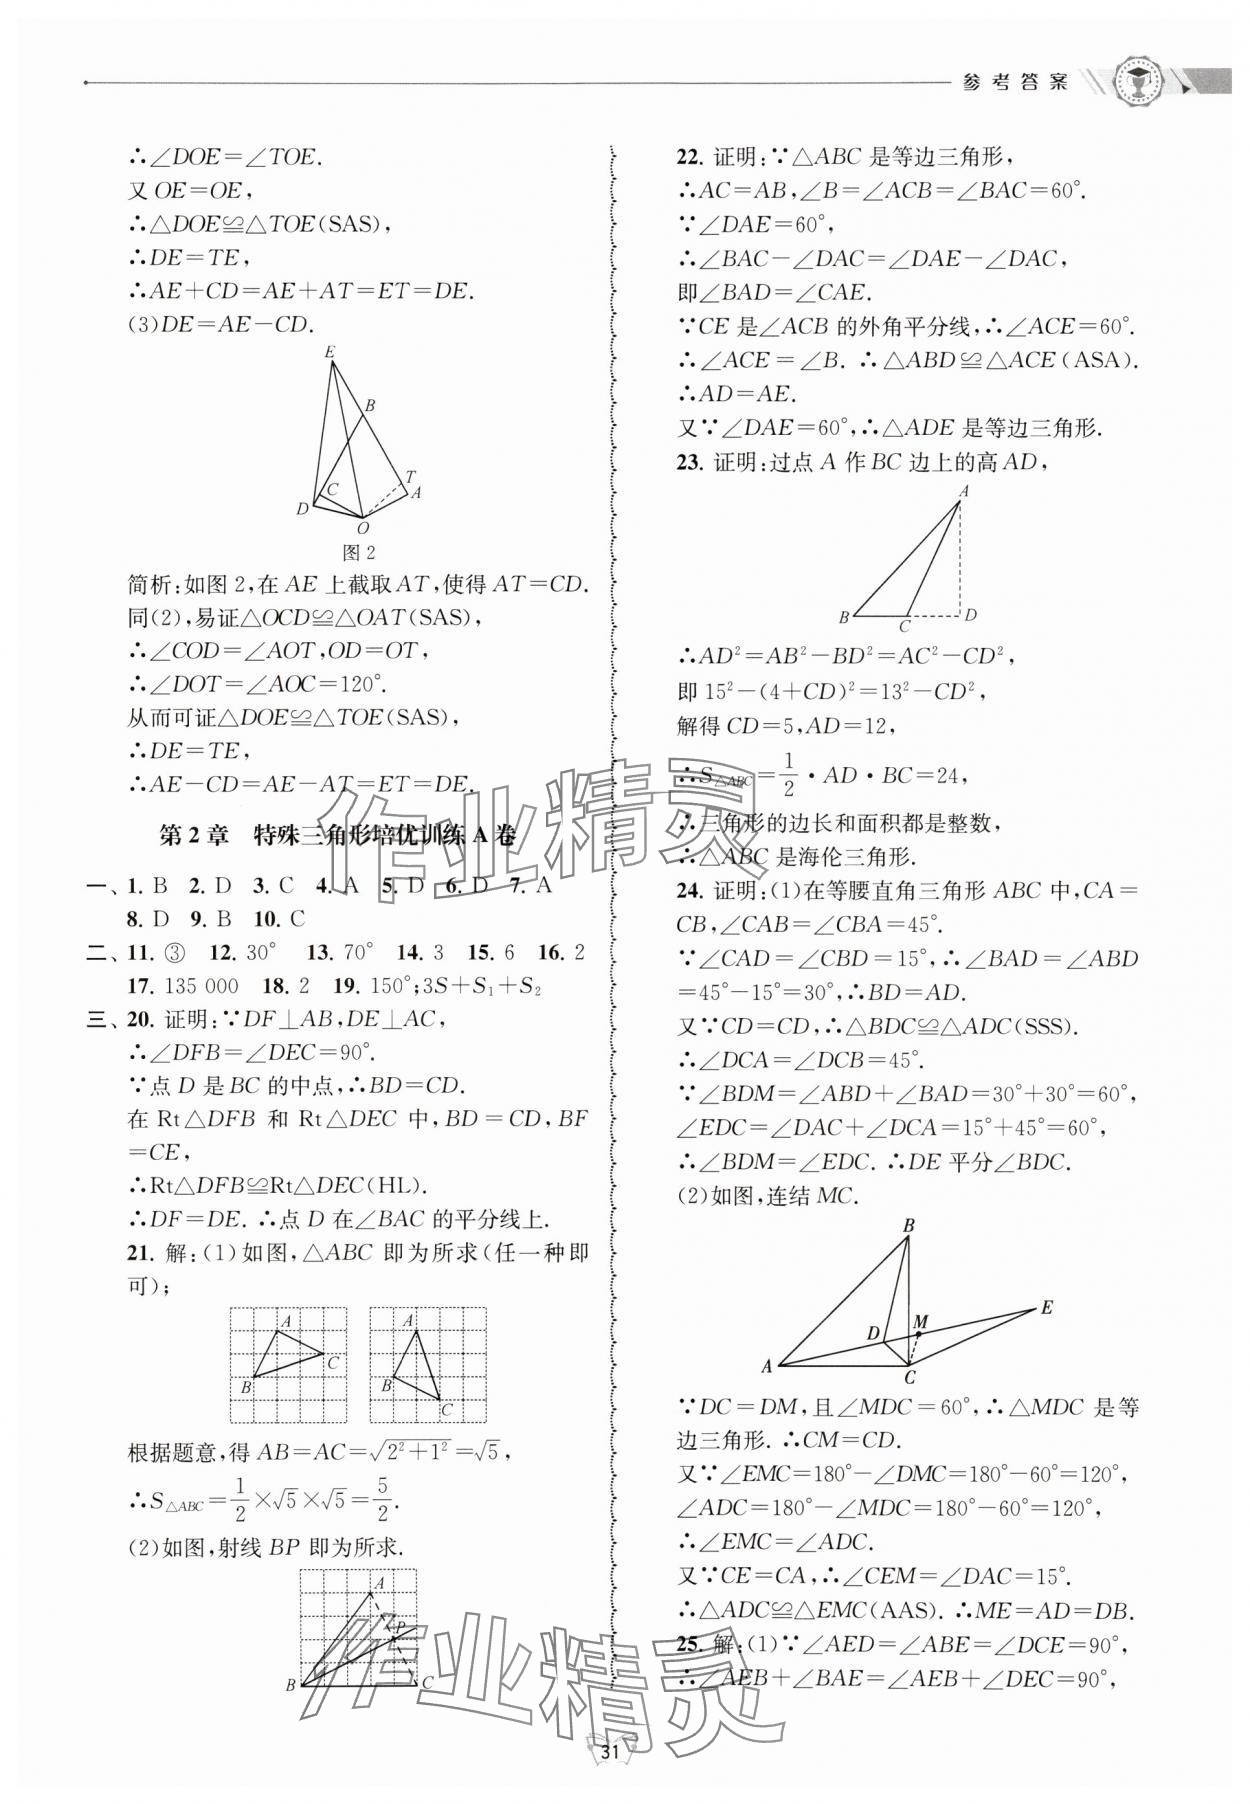 参考答案
∴∠DOE=∠TOE.
又 OE=OE,
∴△DOE≌△TOE(SAS),
∴DE=TE,
∴AE+CD=AE+AT=ET=DE.
(3)DE=AE-CD.
E
B
T
C
A
D
O
图 2
简析:如图 2,在 AE 上截取 AT,使得 AT=CD.
同(2),易证△OCD≌△OAT(SAS),
∴∠COD=∠AOT,OD=OT,
∴∠DOT=∠AOC=120°.
从而可证△DOE≌△TOE(SAS),
∴DE=TE,
∴AE-CD=AE-AT=ET=DE.
第 2 章 特殊三角形培优训练 A 卷
一、1. B 2. D 3. C 4. A 5. D 6. D 7. A
8. D 9. B 10. C
二、11. ③ 12. 30° 13. 70° 14. 3 15. 6 16. 2
17. 135 000 18. 2 19. 150°;3S+S₁+S₂
三、20. 证明:∵DF⊥AB,DE⊥AC,
∴∠DFB=∠DEC=90°.
∵点 D 是 BC 的中点,∴BD=CD.
在 Rt△DFB 和 Rt△DEC 中,BD=CD,BF
=CE,
∴Rt△DFB≌Rt△DEC(HL).
∴DF=DE. ∴点 D 在∠BAC 的平分线上.
21. 解:(1)如图,△ABC 即为所求(任一种即
可);
A
C
B
A
B
C
根据题意,得 AB=AC=√(2²+1²)=√5,
∴S△ABC=1/2×√5×√5=5/2.
(2)如图,射线 BP 即为所求.
A
P
B
C
22. 证明:∵△ABC 是等边三角形,
∴AC=AB,∠B=∠ACB=∠BAC=60°.
∵∠DAE=60°,
∴∠BAC-∠DAC=∠DAE-∠DAC,
即∠BAD=∠CAE.
∵CE 是∠ACB 的外角平分线,∴∠ACE=60°.
∴∠ACE=∠B. ∴△ABD≌△ACE(ASA).
∴AD=AE.
又∵∠DAE=60°,∴△ADE 是等边三角形.
23. 证明:过点 A 作 BC 边上的高 AD,
A
B
C
D
∴AD²=AB²-BD²=AC²-CD²,
即 15²-(4+CD)²=13²-CD²,
解得 CD=5,AD=12,
∴S△ABC=1/2·AD·BC=24,
∴三角形的边长和面积都是整数,
∴△ABC 是海伦三角形.
24. 证明:(1)在等腰直角三角形 ABC 中,CA=
CB,∠CAB=∠CBA=45°.
∵∠CAD=∠CBD=15°,∴∠BAD=∠ABD
=45°-15°=30°,∴BD=AD.
又∵CD=CD,∴△BDC≌△ADC(SSS).
∴∠DCA=∠DCB=45°.
∵∠BDM=∠ABD+∠BAD=30°+30°=60°,
∠EDC=∠DAC+∠DCA=15°+45°=60°,
∴∠BDM=∠EDC. ∴DE 平分∠BDC.
(2)如图,连结 MC.
B
E
M
D
A
C
∵DC=DM,且∠MDC=60°,∴△MDC 是等
边三角形. ∴CM=CD.
又∵∠EMC=180°-∠DMC=180°-60°=120°,
∠ADC=180°-∠MDC=180°-60°=120°,
∴∠EMC=∠ADC.
又∵CE=CA,∴∠CEM=∠DAC=15°.
∴△ADC≌△EMC(AAS). ∴ME=AD=DB.
25. 解:(1)∵∠AED=∠ABE=∠DCE=90°,
∴∠AEB+∠BAE=∠AEB+∠DEC=90°,
作业精灵
作业精灵
31